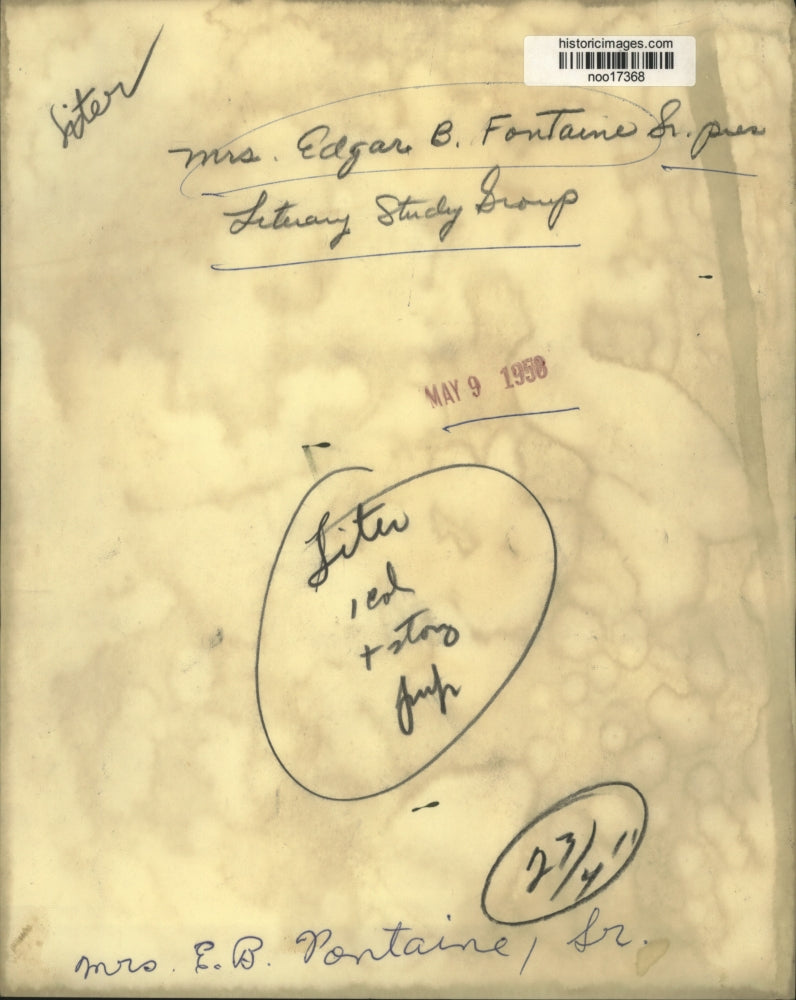 historicimages.com
noo17368
Liter
Mrs. Edgar B. Fontaine Sr. pres
Literary Study Group
MAY 9 1958
Liter
1 col
+ story
2 3/4"
Mrs. E. B. Fontaine, Sr.